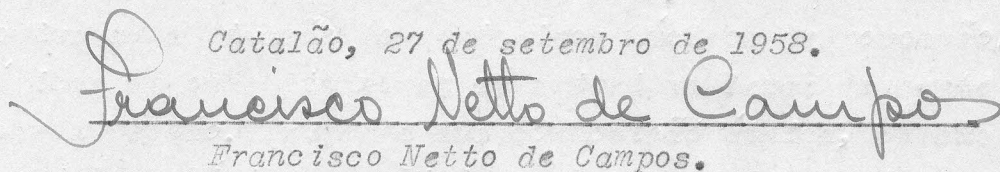 Catalão, 27 de setembro de 1958.
Francisco Netto de Campos
Francisco Netto de Campos.